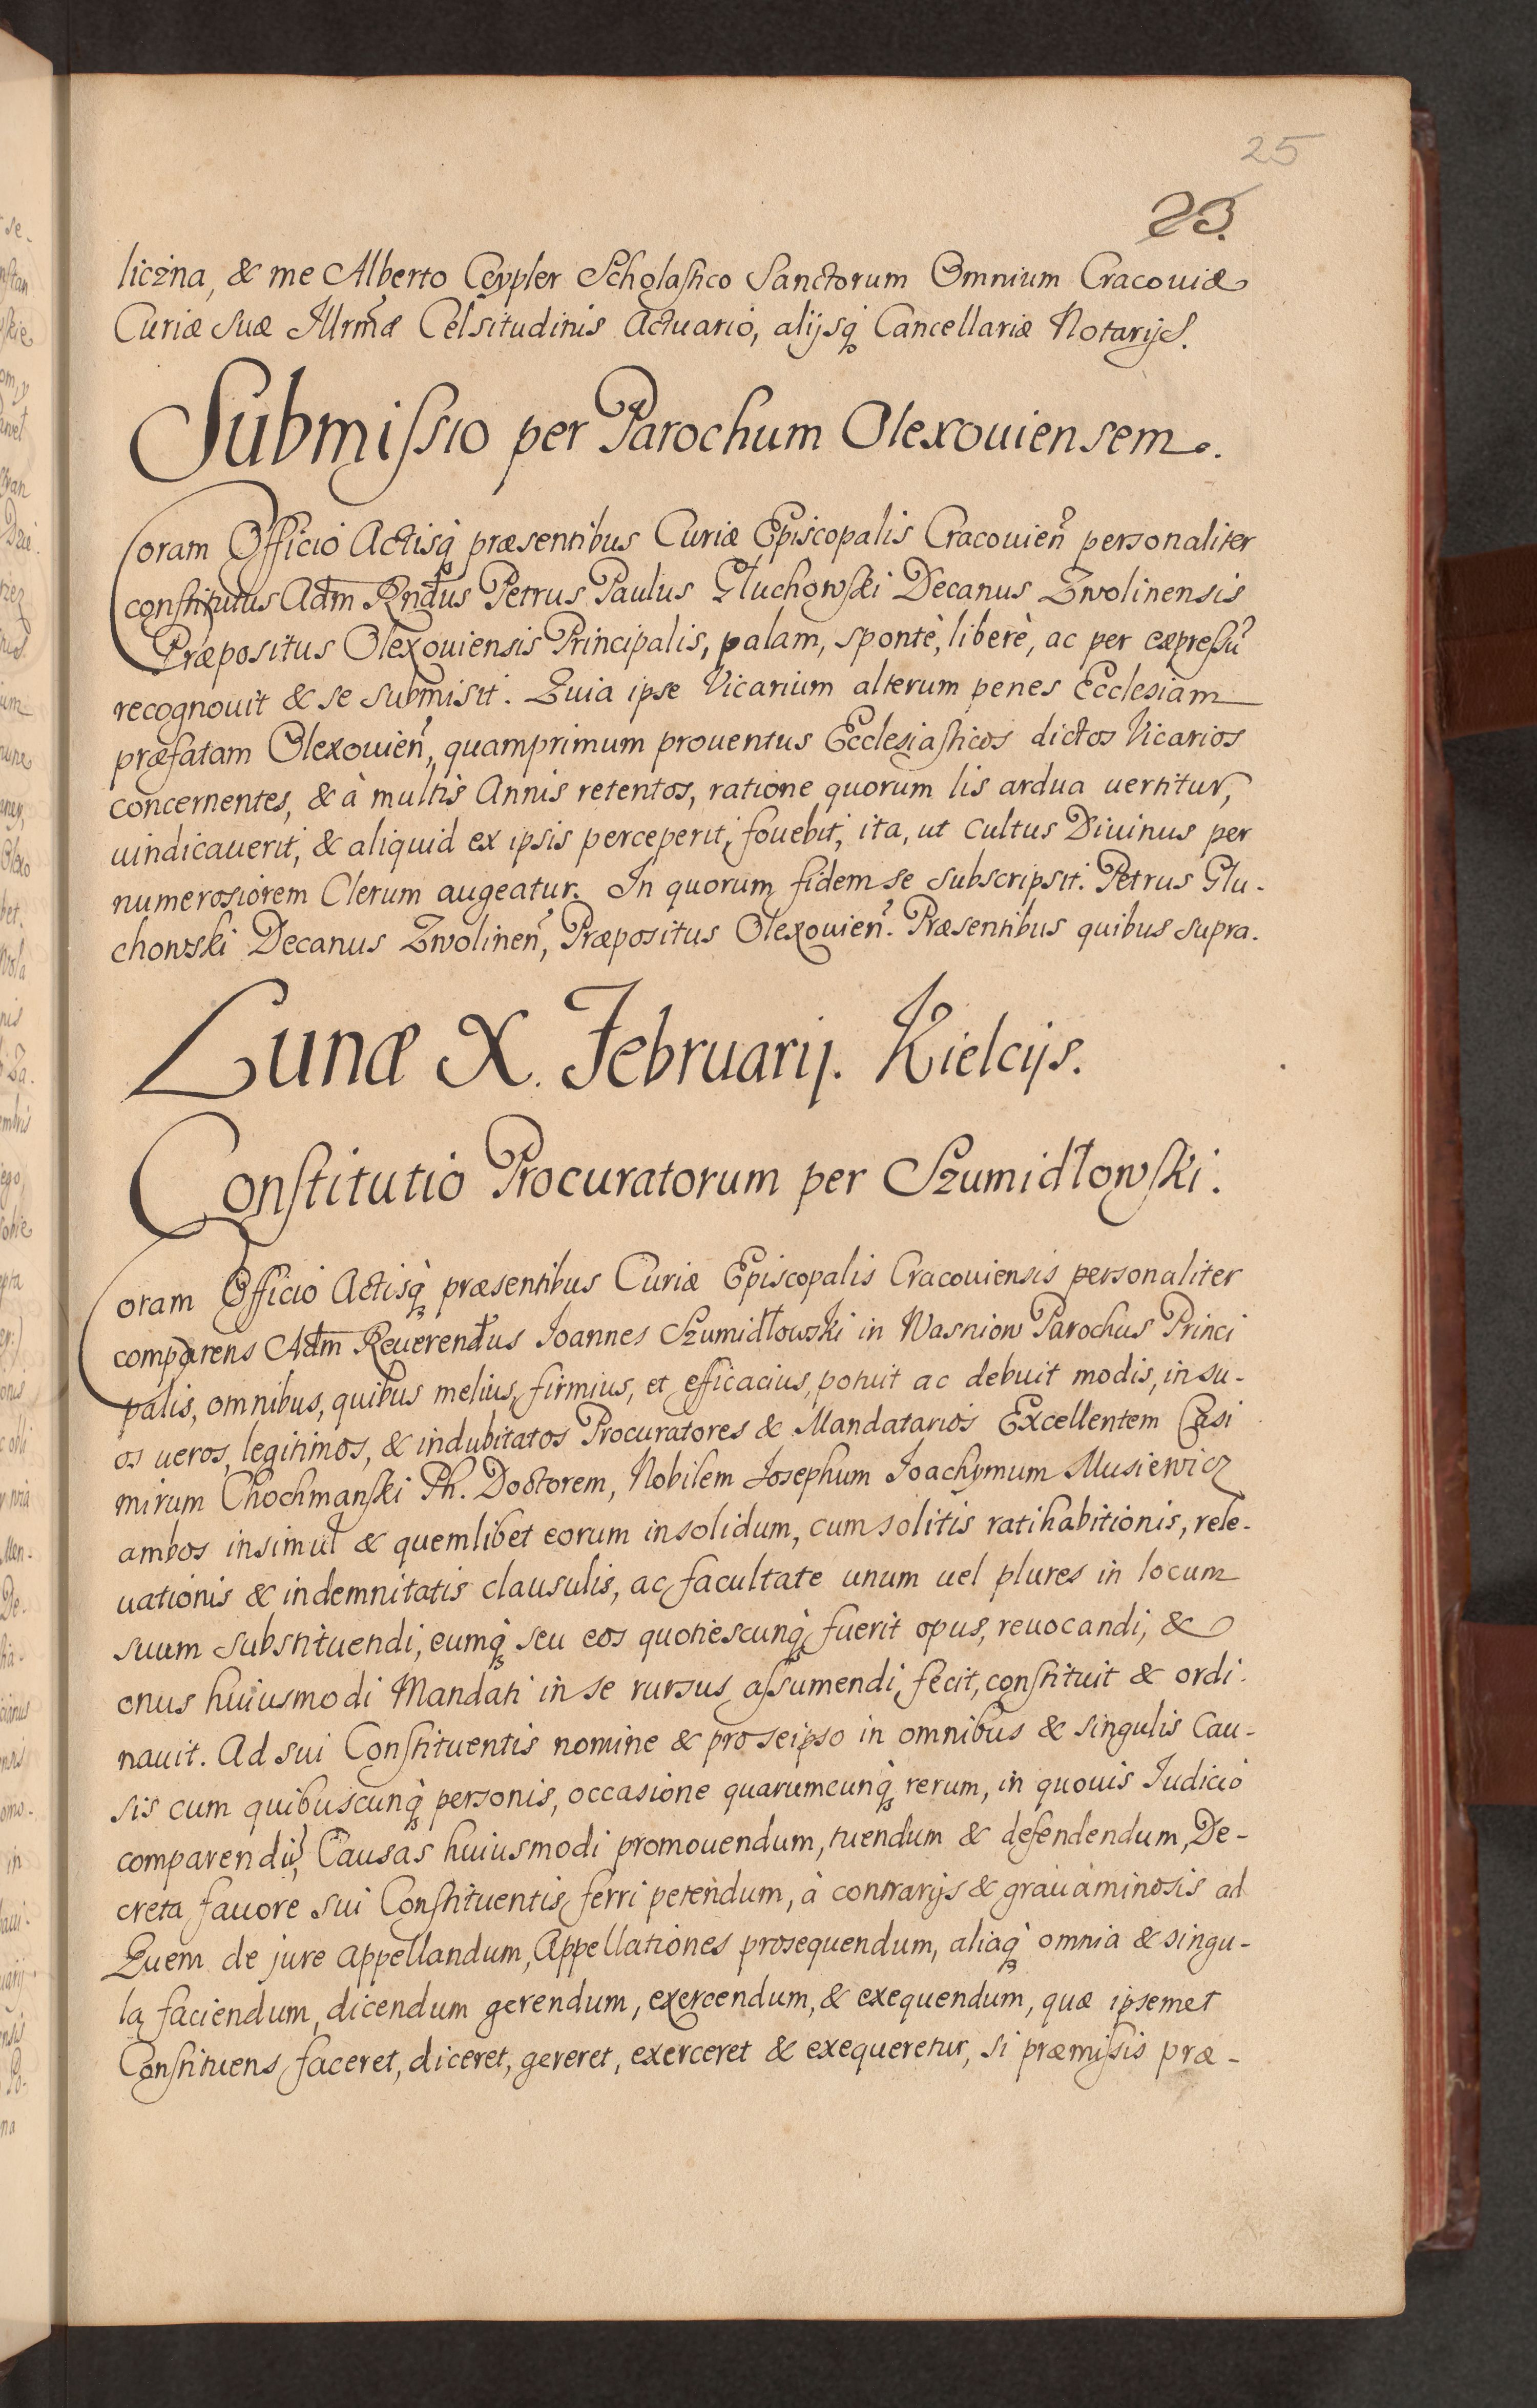 25
23.
liczna, & me Alberto Ceypler Scholastico Sanctorum Omnium Cracouiæ
Curiæ suæ Illrm̃æ Celsitudinis Actuario, alijsq́ꝫ Cancellariæ Notarijs.
Submissio per Parochum Olexouiensem.
Coram Officio Actisq́ꝫ præsentibus Curiæ Episcopalis Cracouien̉ personaliter
constitutus Adm̄ Rnd̄us Petrus Paulus Gluchowski Decanus Zwolinensis
Præpositus Olexouiensis Principalis, palam, spontè, liberè, ac per expressũ
recognouit & se submisit. Quia ipse Vicarium alterum penes Ecclesiam
præfatam Olexouien̉, quamprimum prouentus Ecclesiasticos dictos Vicarios
concernentes, & à multis Annis retentos, ratione quorum lis ardua uertitur,
uindicauerit, & aliquid ex ipsis perceperit, fouebit, ita, ut Cultus Diuinus per
numerosiorem Clerum augeatur. In quorum fidem se subscripsit. Petrus Glu-
chowski Decanus Zwolinen̉, Præpositus Olexouien̉. Præsentibus quibus supra.
Lunæ X. Februarij. Kielcijs.
Constitutio Procuratorum per Szumidłowski.
Coram Officio Actisq́ꝫ præsentibus Curiæ Episcopalis Cracouiensis personaliter
comparens Adm̄ Reuerendus Ioannes Szumidłowski in Wasniow Parochus Princi
palis, omnibus, quibus melius, firmius, et efficacius, potuit ac debuit modis, in su-
os ueros, legitimos, & indubitatos Procuratores & Mandatarios Excellentem Casi
mirum Chochmanski Ph. Doctorem, Nobilem Josephum Joachymum Musiewicz
ambos insimul & quemlibet eorum in solidum, cum solitis ratihabitionis, rele-
uationis & indemnitatis clausulis, ac facultate unum uel plures in locum
suum substituendi, eumq́ꝫ seu eos quotiescunq́ꝫ fuerit opus, reuocandi, &
onus huiusmodi Mandati in se rursus assumendi, fecit, constituit & ordi-
nauit. Ad sui Constituentis nomine & pro seipso in omnibus & singulis Cau-
sis cum quibuscunq́ꝫ personis, occasione quarumcunq́ꝫ rerum, in quouis Iudicio
comparendũ, Causas huiusmodi promouendum, tuendum & defendendum, De-
creta fauore sui Constituentis ferri petendum, à contrarijs & grauaminosis ad
Quem de jure appellandum, Appellationes prosequendum, aliaq́ꝫ omnia & singu-
la faciendum, dicendum gerendum, exercendum, & exequendum, quæ ipsemet
Constituens faceret, diceret, gereret, exerceret & exequeretur, si præmissis præ-